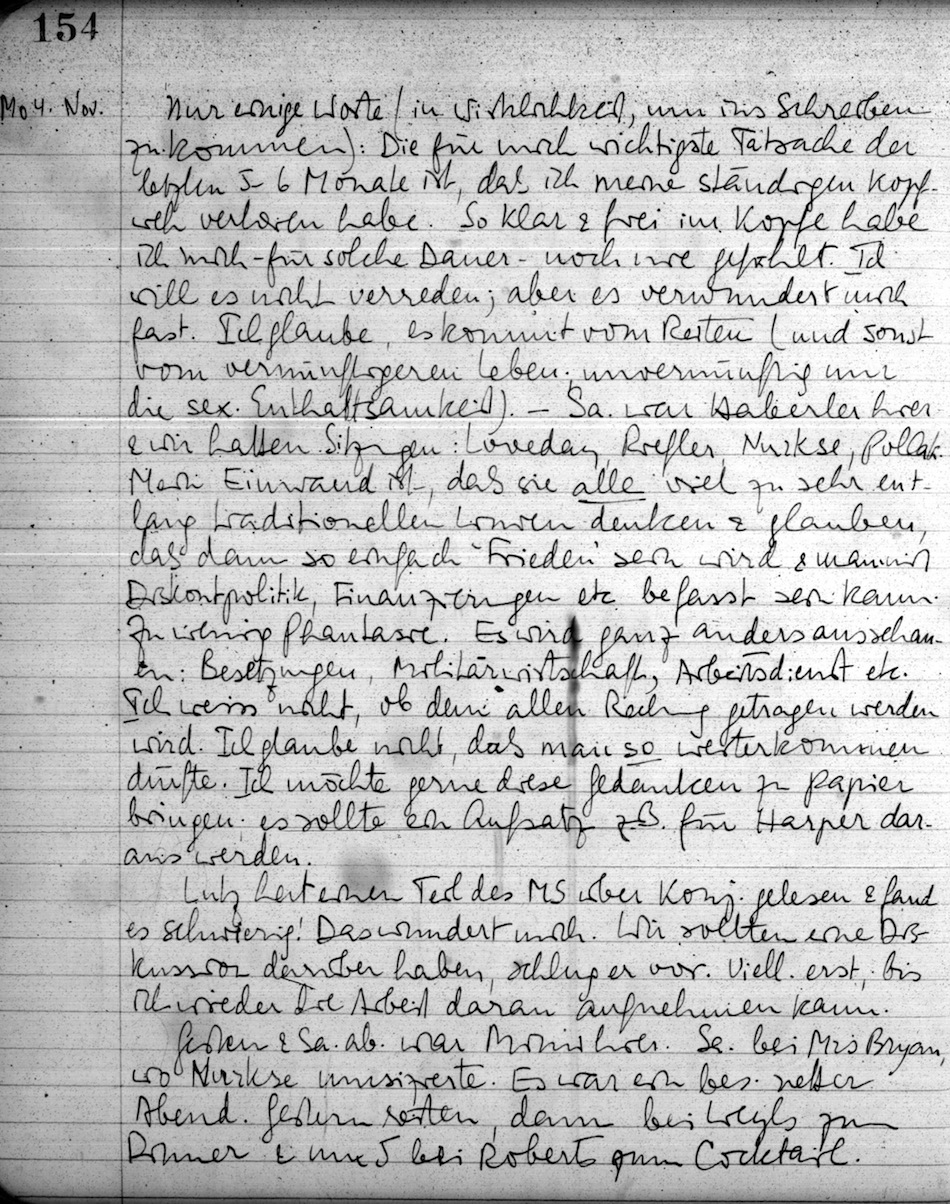 154
Mo 4. Nov.
Nur einige Worte (in Wirklichkeit, um ins Schreiben
zu kommen): Die für mich wichtigste Tatsache der
letzten 5-6 Monate ist, daß ich meine ständigen Kopf-
weh verloren habe. So klar & frei im Kopfe habe
ich mich - für solche Dauer - noch nie gefühlt. Ich
will es nicht verreden; aber es verwundert mich
fast. Ich glaube, es kommt vom Reiten (und sonst
vom vernünftigeren Leben; unvernünftig nur
die sex. Enthaltsamkeit). – Sa. war Haberler hier
& wir hatten Sitzgen: Loveday, Riefler, Nurkse, Pollak.
Mein Einwand ist, daß sie alle viel zu sehr ent-
lang traditionellen Linien denken & glauben,
daß dann so einfach 'Frieden' sein wird & man mit
Diskontpolitik, Finanzierungen etc befasst sein kann.
Zu wenig Phantasie. Es wird ganz anders ausschau-
en: Besetzungen, Militärwirtschaft, Arbeitsdienst etc.
Ich weiss nicht, ob dem allen Rechng getragen werden
wird. Ich glaube nicht, daß man so weiterkommen
dürfte. Ich möchte gerne diese Gedanken zu Papier
bringen; es sollte ein Aufsatz z.B. für Harper dar-
aus werden.
Lutz hat einen Teil des MS über Konj. gelesen & fand
es schwierig! Das wundert mich. Wir sollten eine Dis-
kussion darüber haben, schlug er vor. Viell. erst, bis
ich wieder die Arbeit daran aufnehmen kann.
Gestern & Sa. ab. war hier. Sa. bei Mrs Bryan,
wo Nurkse musizierte. Es war ein bes. netter
Abend. Gestern reiten, dann bei Weyls zum
Dinner & um 5 bei Roberts zum Cocktail.